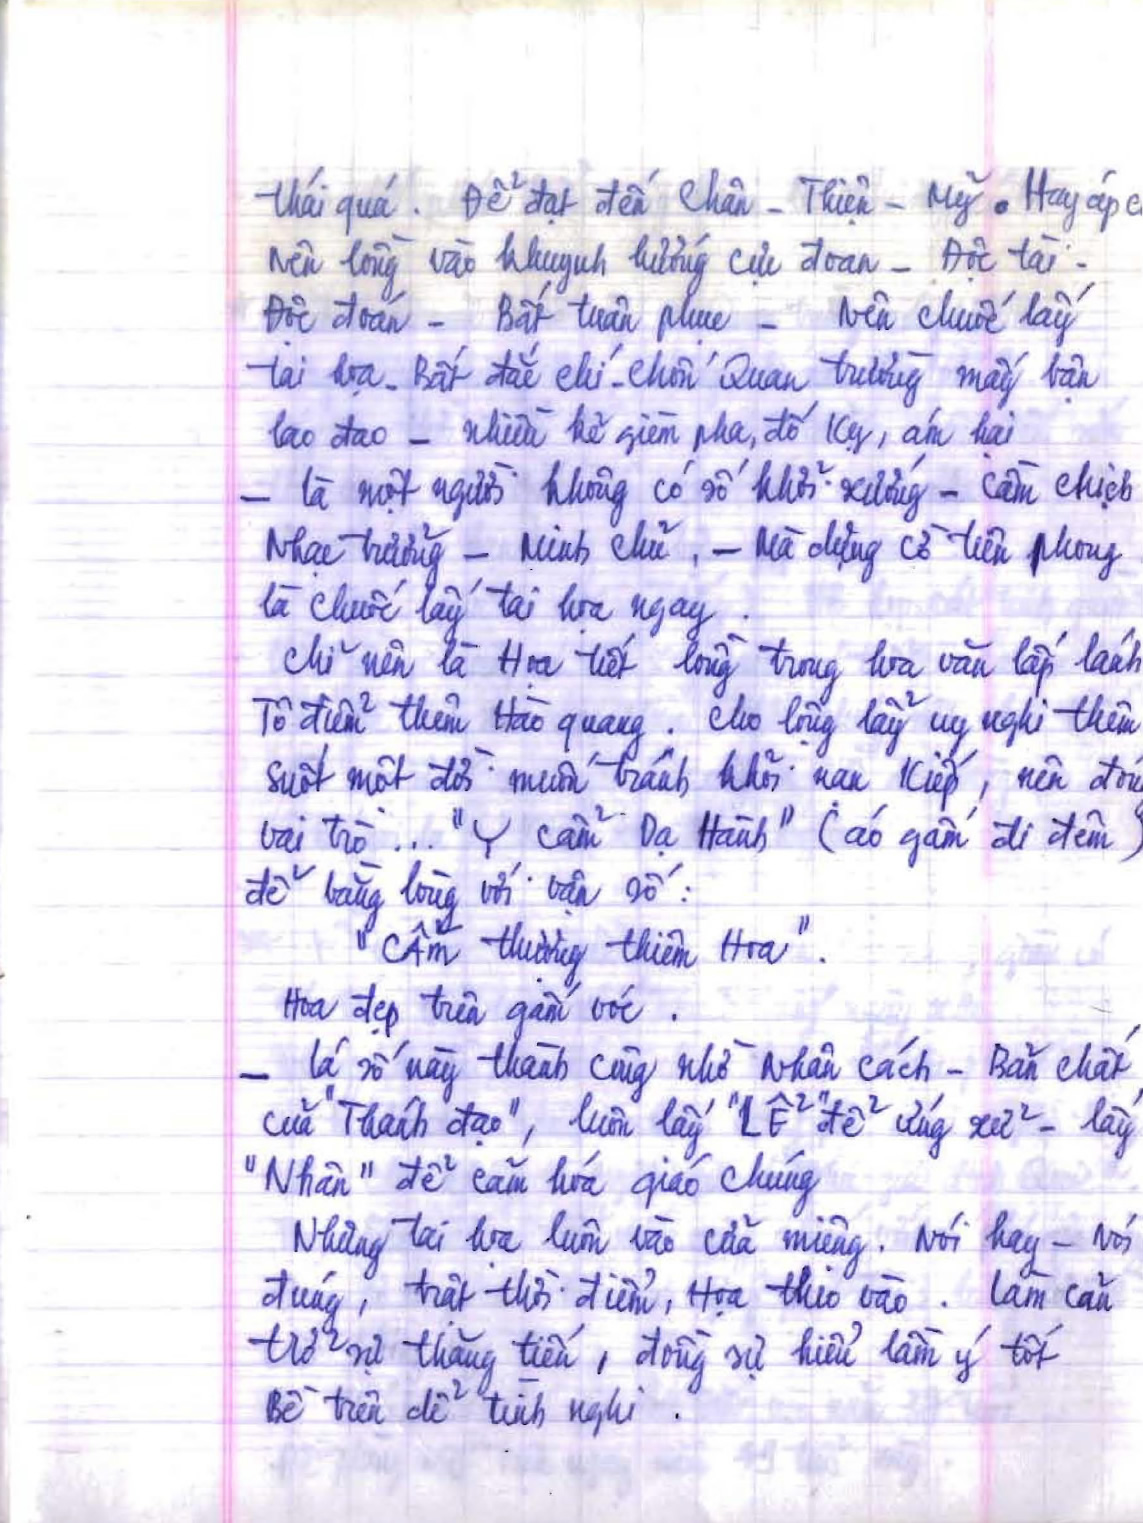 thái quá. Để đạt đến Chân - Thiện - Mỹ. Hay áp c
Nên lồng vào khuynh hướng cực đoan - Độc tài -
Độc đoán - Bất tuân phục - Nên chuốc lấy
tai họa - Bất đắc chí - Chốn Quan trường mấy bận
lao đao - nhiều kẻ gièm pha, đố kỵ, ám hại
- là một người không có số khởi xướng - Cầm chịch
Nhạc trưởng - Minh chủ, - Mà dựng cờ tiên phong
là chuốc lấy tai họa ngay.
Chỉ nên là Họa tiết lồng trong hoa văn lấp lánh
Tô điểm thêm Hào quang. Cho lộng lẫy uy nghi thêm
Suốt một đời muốn tránh khỏi nạn kiếp, nên đón
vai trò ... "Y cẩm Dạ Hành" (áo gấm đi đêm)
để bằng lòng với vận số:
"CẨM thượng thiêm Hoa".
Hoa đẹp trên gấm vóc.
- lá số này thành công nhờ Nhân cách - Bản chất
của "Thánh đạo", luôn lấy "LỄ" để ứng xử - lấy
"Nhân" để cảm hóa giáo chúng
Những tai họa luôn vào cửa miệng. Nói hay - Nói
đúng, trật thời điểm, Họa theo vào. Làm cản
trở sự thăng tiến, đồng sự hiểu lầm ý tốt
Bề trên dễ tình nghi.